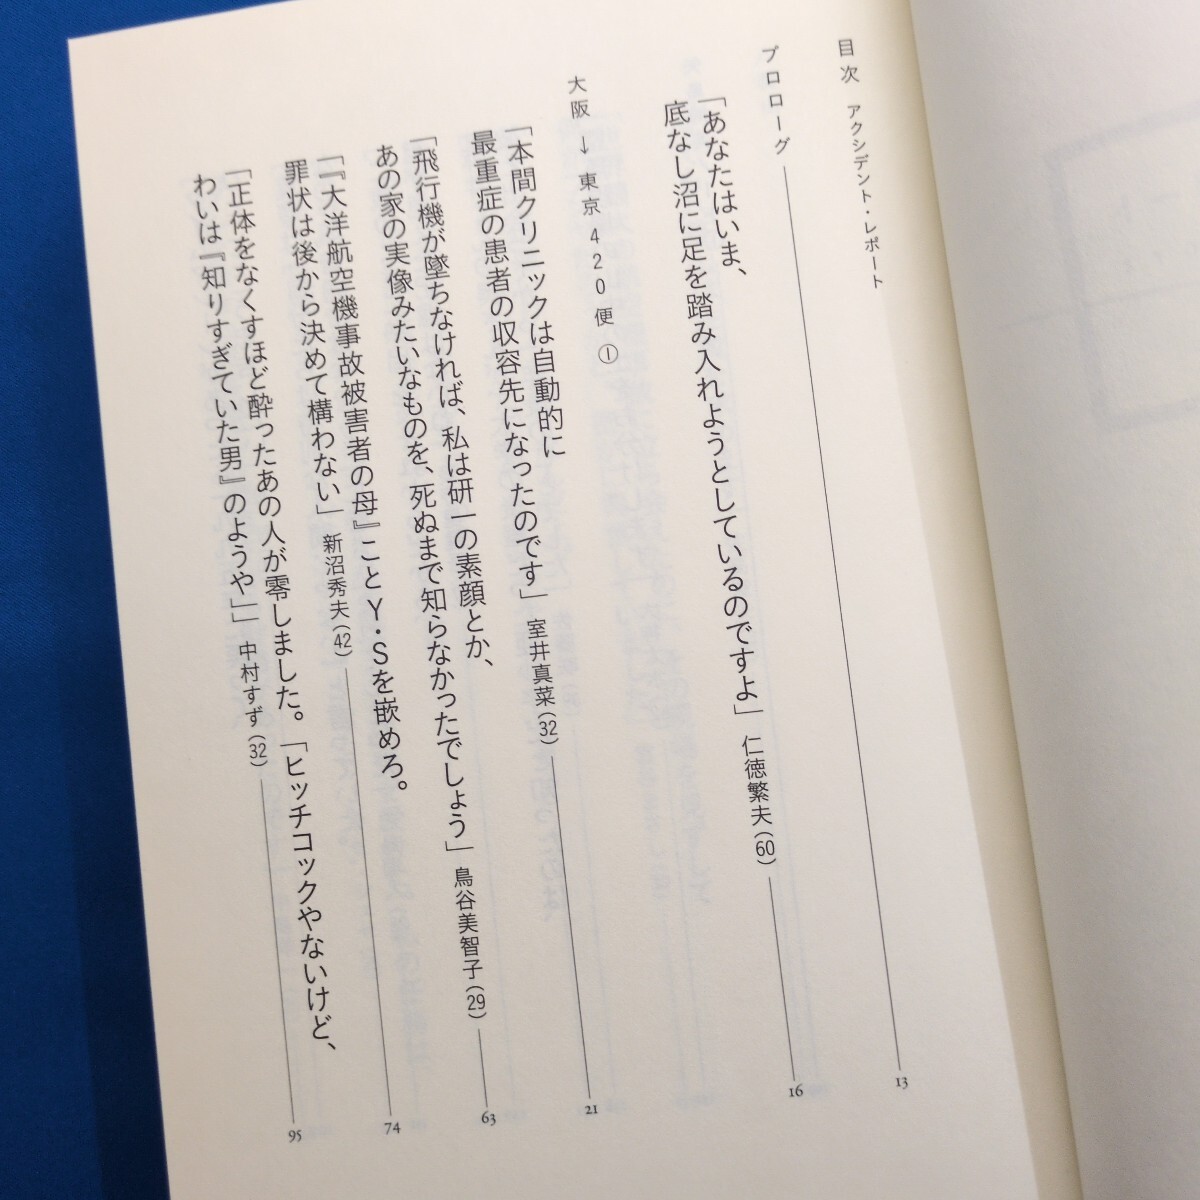 目次 アクシデント・レポート
プロローグ
13
「あなたはいま、
底なし沼に足を踏み入れようとしているのですよ」 仁徳繁夫(60)
16
大阪→東京420便①
「本間クリニックは自動的に
最重症の患者の収容先になったのです」 室井真菜(32)
21
「飛行機が墜ちなければ、私は研一の素顔とか、
あの家の実像みたいなものを、死ぬまで知らなかったでしょう」 鳥谷美智子(29)
63
「『大洋航空機事故被害者の母』ことY・Sを嵌めろ。
罪状は後から決めて構わない」 新沼秀夫(42)
74
「正体をなくすほど酔ったあの人が零しました。「ヒッチコックやないけど、
わいは『知りすぎていた男』のようや」」 中村すず(32)
95